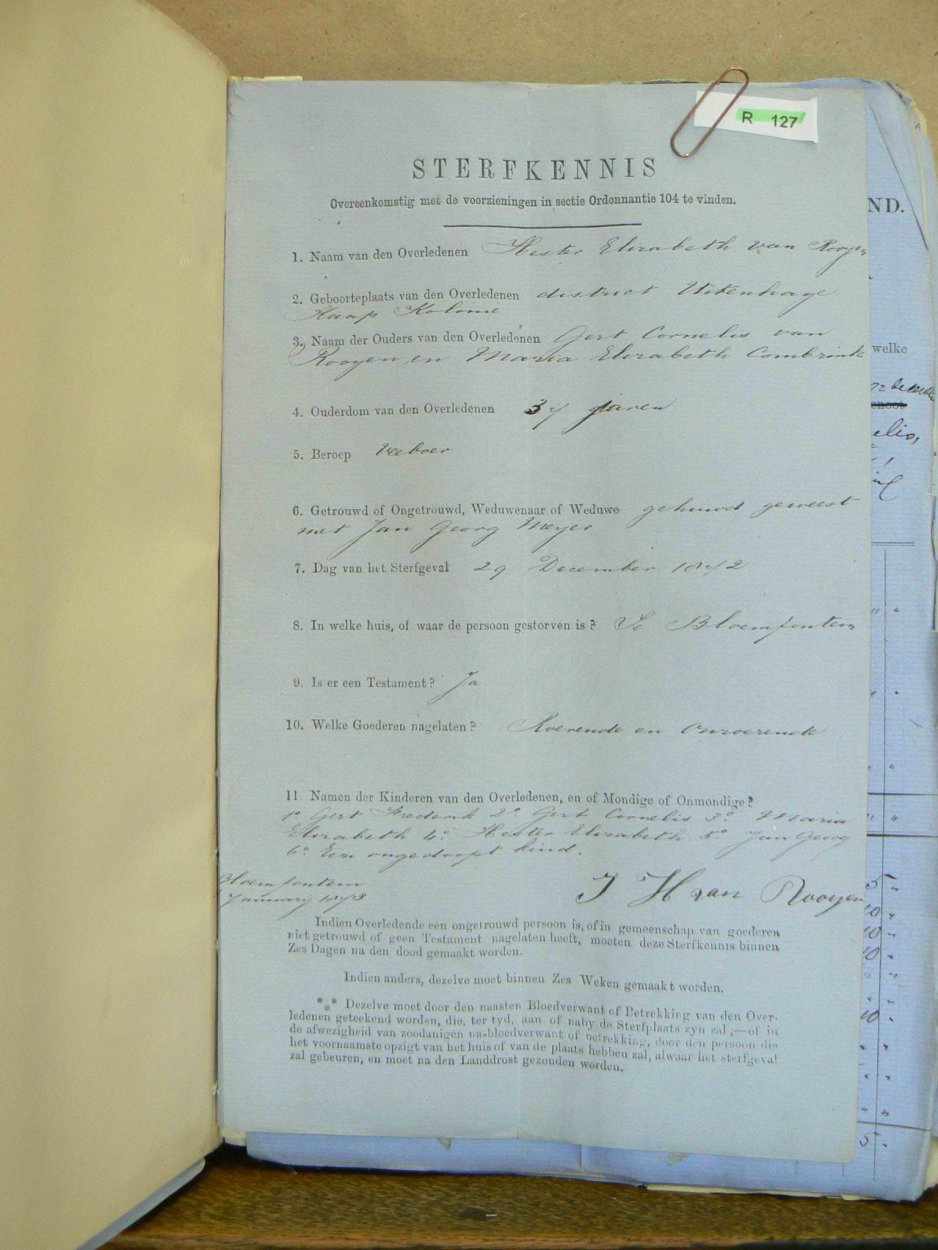 R 127
STERFKENNIS
Overeenkomstig met de voorzieningen in sectie Ordonnantie 104 te vinden.
1. Naam van den Overledenen Hester Elizabeth van Rooyen
2. Geboorteplaats van den Overledenen district Uitenhage
Kaap Kolonie
3. Naam der Ouders van den Overledenen Gert Cornelis van
Rooyen en Maria Elizabeth Combrink
4. Ouderdom van den Overledenen 37 jaren
5. Beroep Veeboer
6. Getrouwd of Ongetrouwd, Weduwenaar of Weduwe gehuwd geweest
met Jan Georg Meyer
7. Dag van het Sterfgeval 29 December 1872
8. In welke huis, of waar de persoon gestorven is? Te Bloemfontein
9. Is er een Testament? Ja
10. Welke Goederen nagelaten? Roerende en Onroerende
11. Namen der Kinderen van den Overledenen, en of Mondige of Onmondige?
1º Gert Frederik 2º Gert Cornelis 3º Maria
Elizabeth 4º Hester Elizabeth 5º Jan Georg
6º Een ongedoopt kind.
Bloemfontein
January 1873
J H van Rooyen
Indien Overledende een ongetrouwd persoon is, of in gemeenschap van goederen
niet getrouwd of geen Testament nagelaten heeft, moeten deze Sterfkennis binnen
Zes Dagen na den dood gemaakt worden.
Indien anders, dezelve moet binnen Zes Weken gemaakt worden.
*** Dezelve moet door den naasten Bloedverwant of Betrekking van den Over-
ledenen geteekend worden, die, ter tyd, aan of naby de Sterfplaats zyn zal ;—of in
de afwezigheid van zoodanigen na-bloedverwant of betrekking, door den persoon die
het voornaamste opzigt van het huis of van de plaats hebben zal, alwaar het sterfgeval
zal gebeuren, en moet na den Landdrost gezonden worden.
ND.
welke
elis,
5
10
10
10
10
5